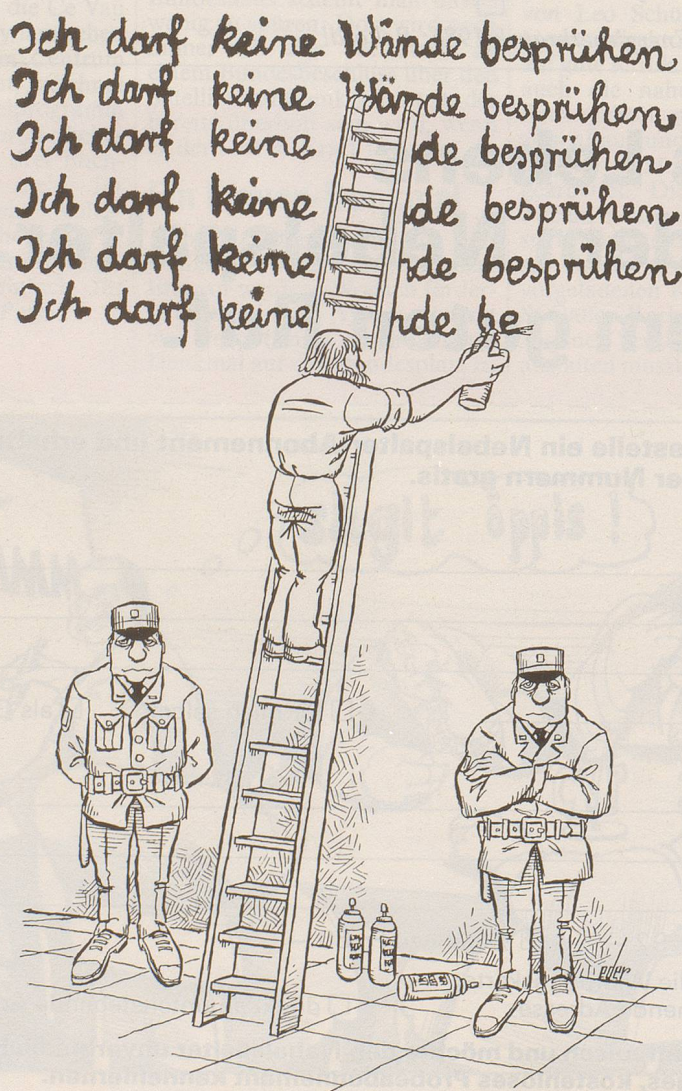 Ich darf keine Wände besprühen
Ich darf keine Wände besprühen
Ich darf keine de besprühen
Ich darf keine de besprühen
Ich darf keine nde besprühen
Ich darf keine nde be
eder